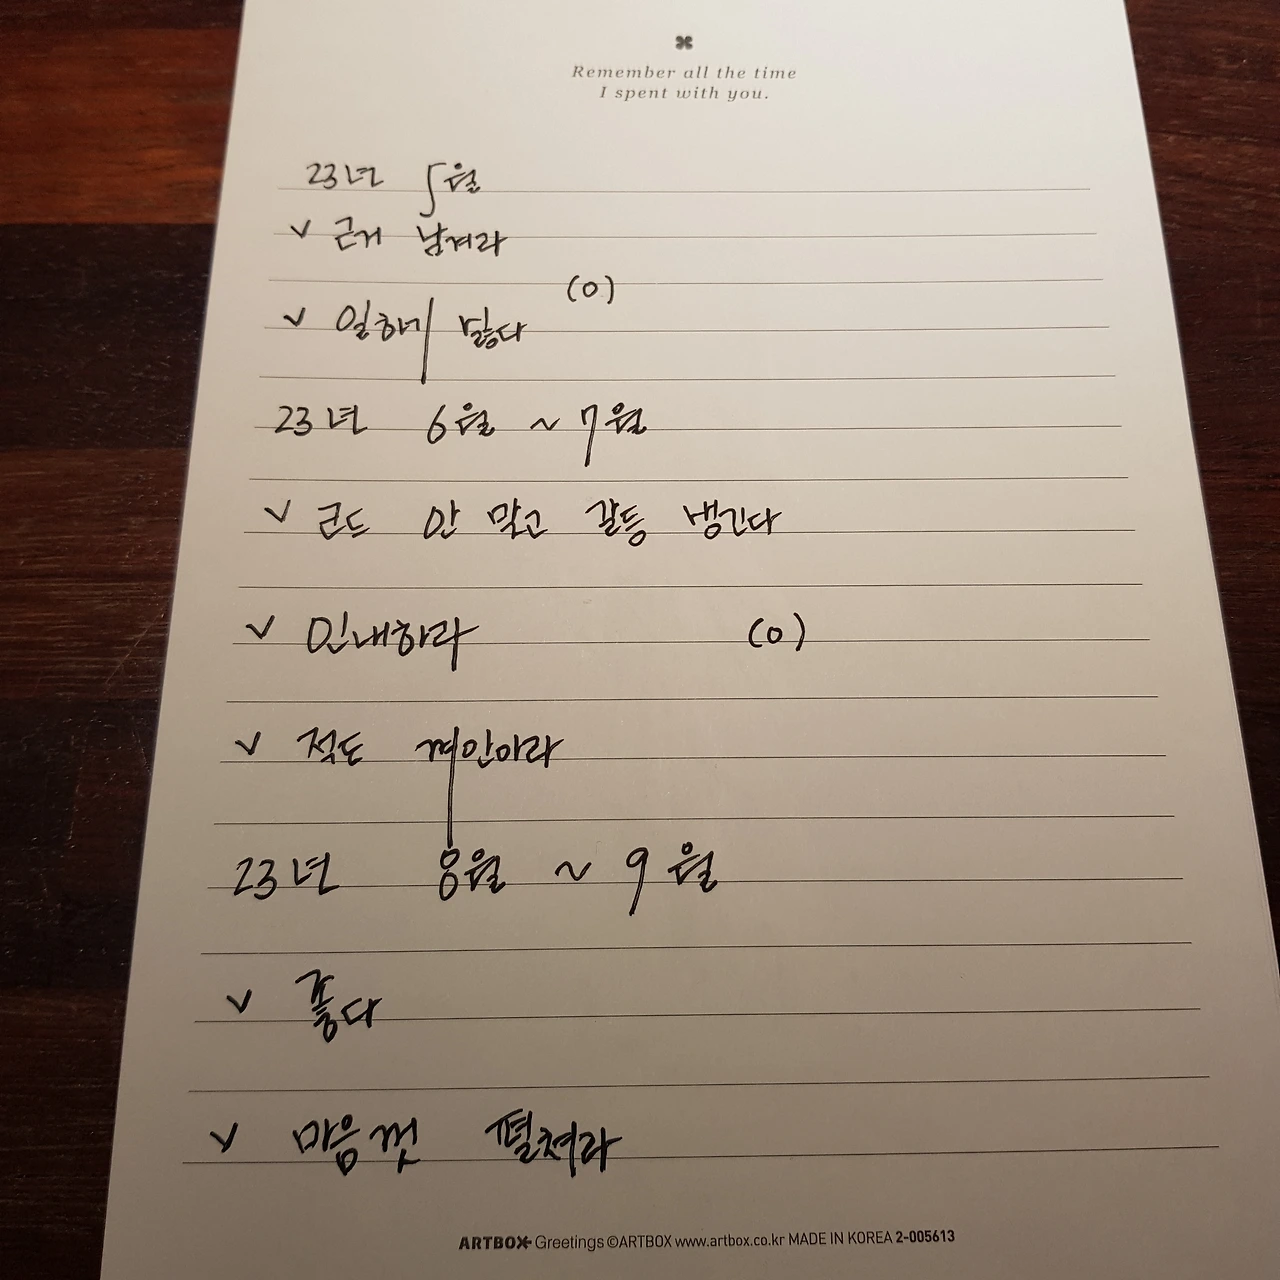 Remember all the time
I spent with you.
23년 5월
✓ 근거 남겨라
(0)
✓ 일하기 싫다
23년 6월 ~ 7월
✓ 코드 안 맞고 갈등 생긴다
✓ 인내하라 (0)
✓ 적도 껴안아라
23년 8월 ~ 9월
✓ 좋다
✓ 마음껏 펼쳐라
ARTBOX Greetings ©ARTBOX www.artbox.co.kr MADE IN KOREA 2-005613